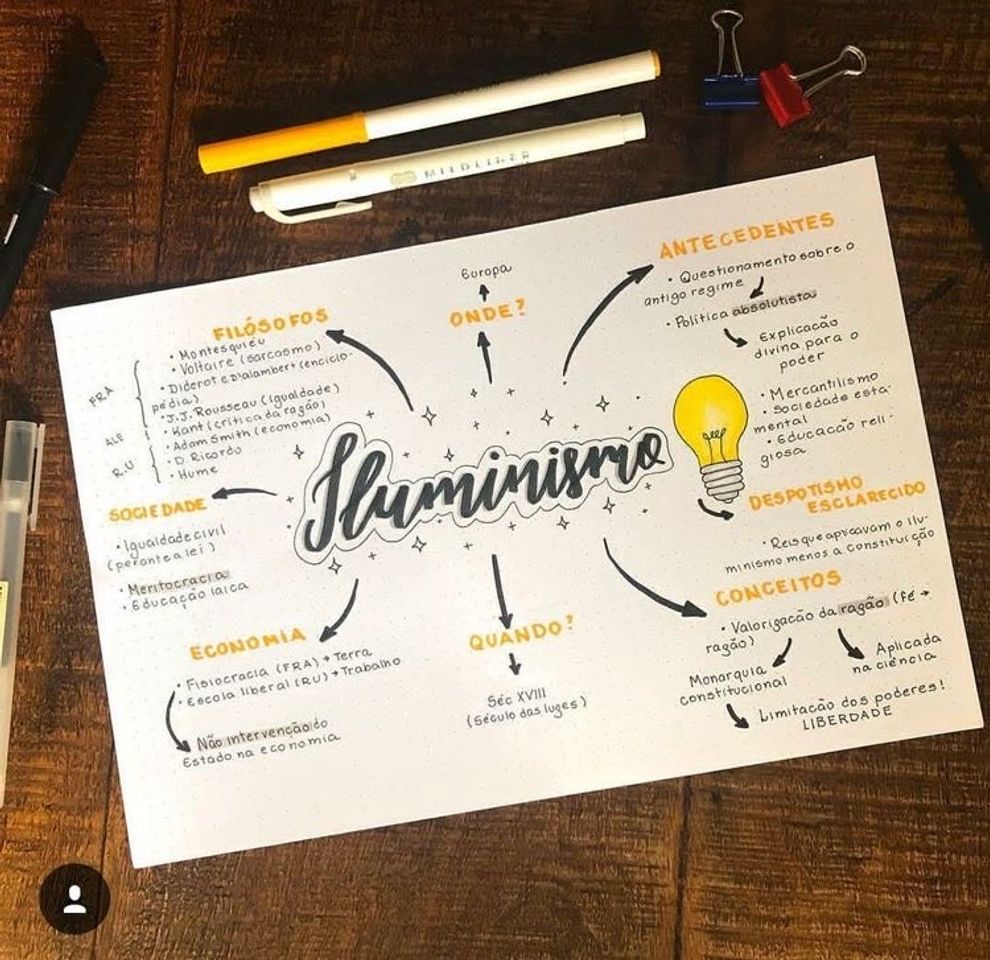 MILDLINER
Iluminismo
FILÓSOFOS
• Montesquieu
• Voltaire (sarcasmo)
• Diderot e D'alambert (enciclo-
pédia)
• J.J. Rousseau (igualdade)
• Kant (crítica da razão)
• Adam Smith (economia)
• D. Ricardo
• Hume
FRA
ALE
RU
Europa
ONDE?
ANTECEDENTES
• Questionamento sobre o
antigo regime
• Política absolutista
Explicação
divina para o
poder
• Mercantilismo
• Sociedade esta-
mental
• Educação reli-
giosa
DESPOTISMO
ESCLARECIDO
• Reis que aplicavam o ilu-
minismo menos a constituição
SOCIEDADE
• Igualdade civil
(perante a lei)
• Meritocracia
• Educação laica
ECONOMIA
• Fisiocracia (FRA) → Terra
• Escola liberal (RU) → Trabalho
Não intervenção do
Estado na economia
QUANDO?
Séc XVIII
(Século das luzes)
CONCEITOS
• Valorização da razão (Fé →
razão)
Monarquia
constitucional
Aplicada
na ciência
Limitação dos poderes!
LIBERDADE